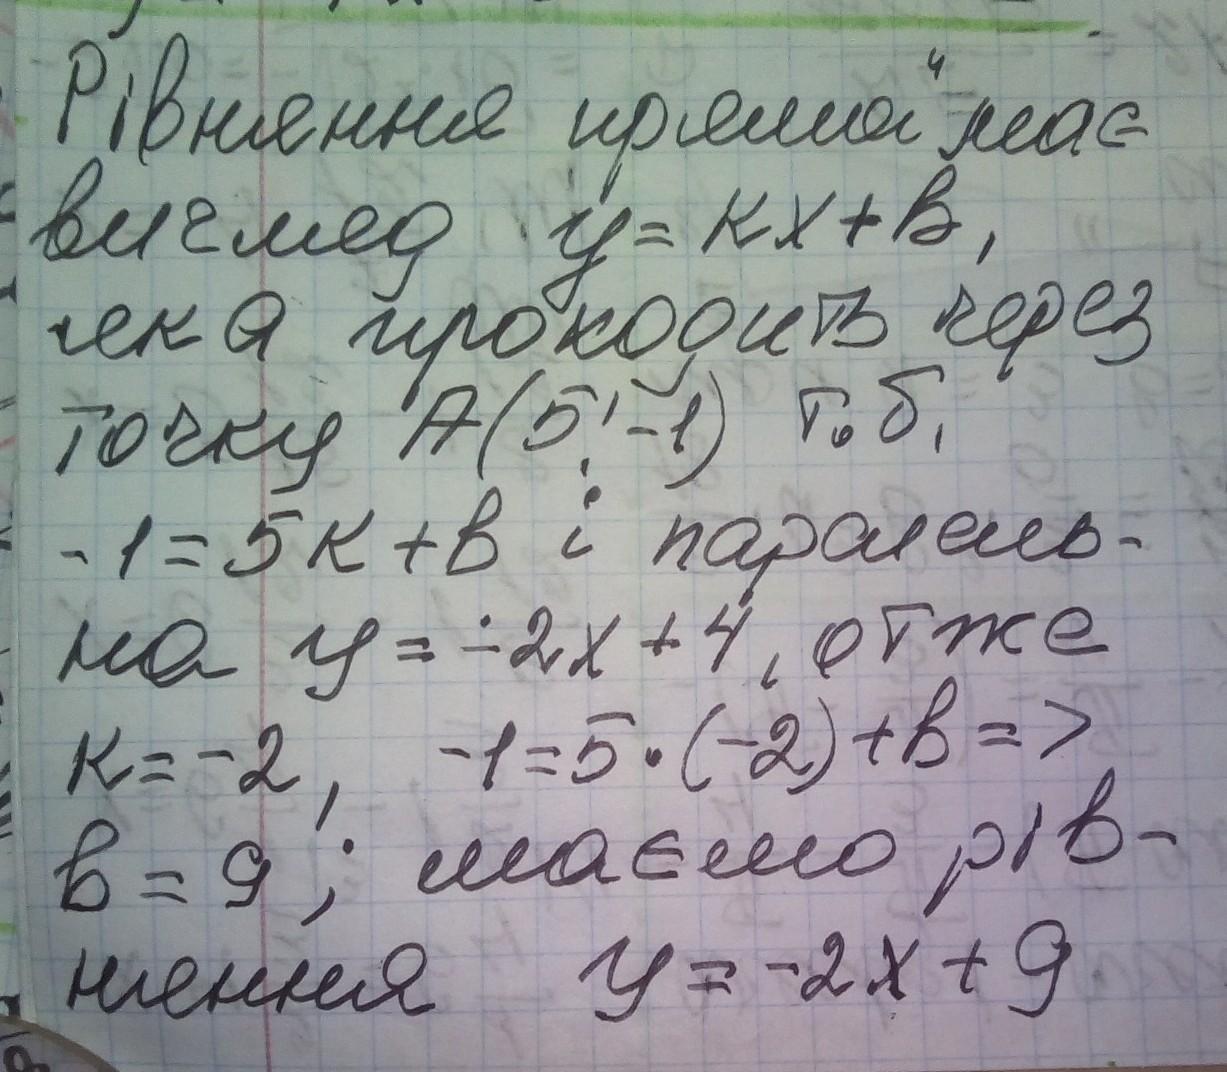 Рівняння прямої має
вигляд у=кх+в,
яка проходить через
точку А(5;-1) т.б.
-1=5к+в і паралель-
на у=-2х+4, отже
к=-2, -1=5·(-2)+в=>
в=9; маємо рів-
няння у=-2х+9